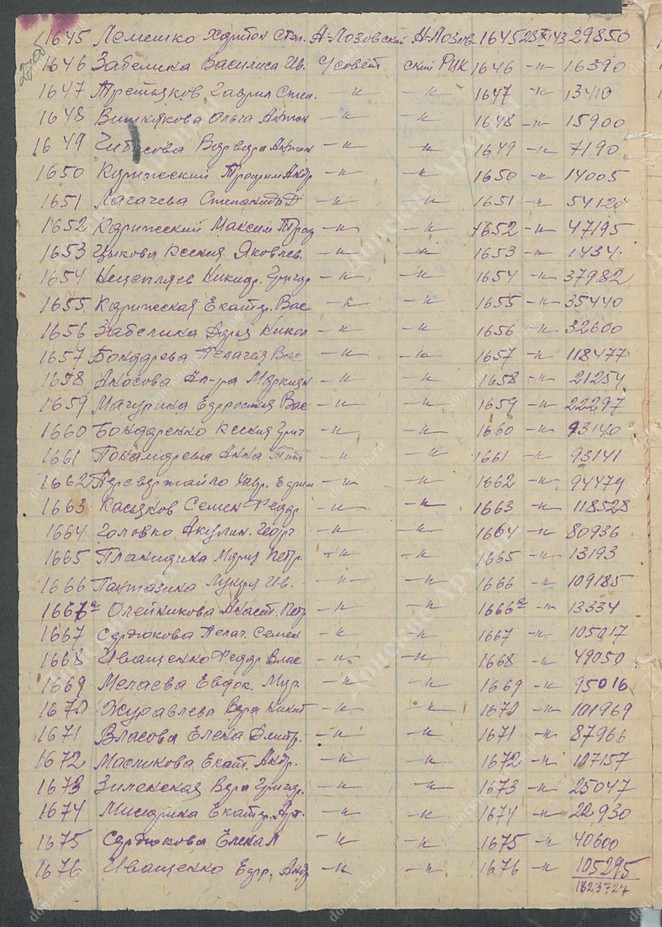 1645 Лемешко Харитон Степ. Н-Лозовский Н-Лозов 1645 23 XI 43 29850
1646 Забелина Василиса Ив. с/совет ский РИК 1646 -"- 16390
1647 Третьяков Гаврил Степ. -"- -"- 1647 -"- 13410
1648 Ольга Антон -"- -"- 1648 -"- 15900
1649 Варвара Антон -"- -"- 1649 -"- 7190
1650 Трофим Андр -"- -"- 1650 -"- 14005
1651 Степанида -"- -"- 1651 -"- 54120
1652 Максим Троф -"- -"- 1652 -"- 47195
1653 Цыкова Ксения Яковлев. -"- -"- 1653 -"- 1434
1654 Никандр. Григор -"- -"- 1654 -"- 37982
1655 Екатер. Вас -"- -"- 1655 -"- 35440
1656 Забелина Дарья Никол -"- -"- 1656 -"- 32600
1657 Бондарева Пелагея Вас -"- -"- 1657 -"- 118477
1658 Аносова Ал-ра Маркиян -"- -"- 1658 -"- 21254
1659 Мачурина Ефросиния Вас -"- -"- 1659 -"- 22297
1660 Бондаренко Ксения Григ -"- -"- 1660 -"- 93140
1661 Анна Тит -"- -"- 1661 -"- 93141
1662 Гавр. Ефим -"- -"- 1662 -"- 94479
1663 Казаков Семен Федор -"- -"- 1663 -"- 118528
1664 Головко Акулин. Георг -"- -"- 1664 -"- 80936
1665 Мария Петр. -"- -"- 1665 -"- 13193
1666 Лукеря Ив. -"- -"- 1666 -"- 109185
1666а Олейникова Анаст. Петр -"- -"- 1666а -"- 13334
1667 Сердюкова Пелаг. Семен -"- -"- 1667 -"- 105017
1668 Иващенко Федор Влас -"- -"- 1668 -"- 49050
1669 Евдок. -"- -"- 1669 -"- 95016
1670 Журавлева Вера Никит -"- -"- 1670 -"- 101969
1671 Власова Елена Дмитр. -"- -"- 1671 -"- 87966
1672 Масликова Екат. Андр. -"- -"- 1672 -"- 107157
1673 Зиленская Вера Григор. -"- -"- 1673 -"- 25047
1674 Мисюрина Екатер. Арт. -"- -"- 1674 -"- 22930
1675 Сердюкова Елена -"- -"- 1675 -"- 40600
1676 Иващенко Ефр. Анд -"- -"- 1676 -"- 105295
1823727